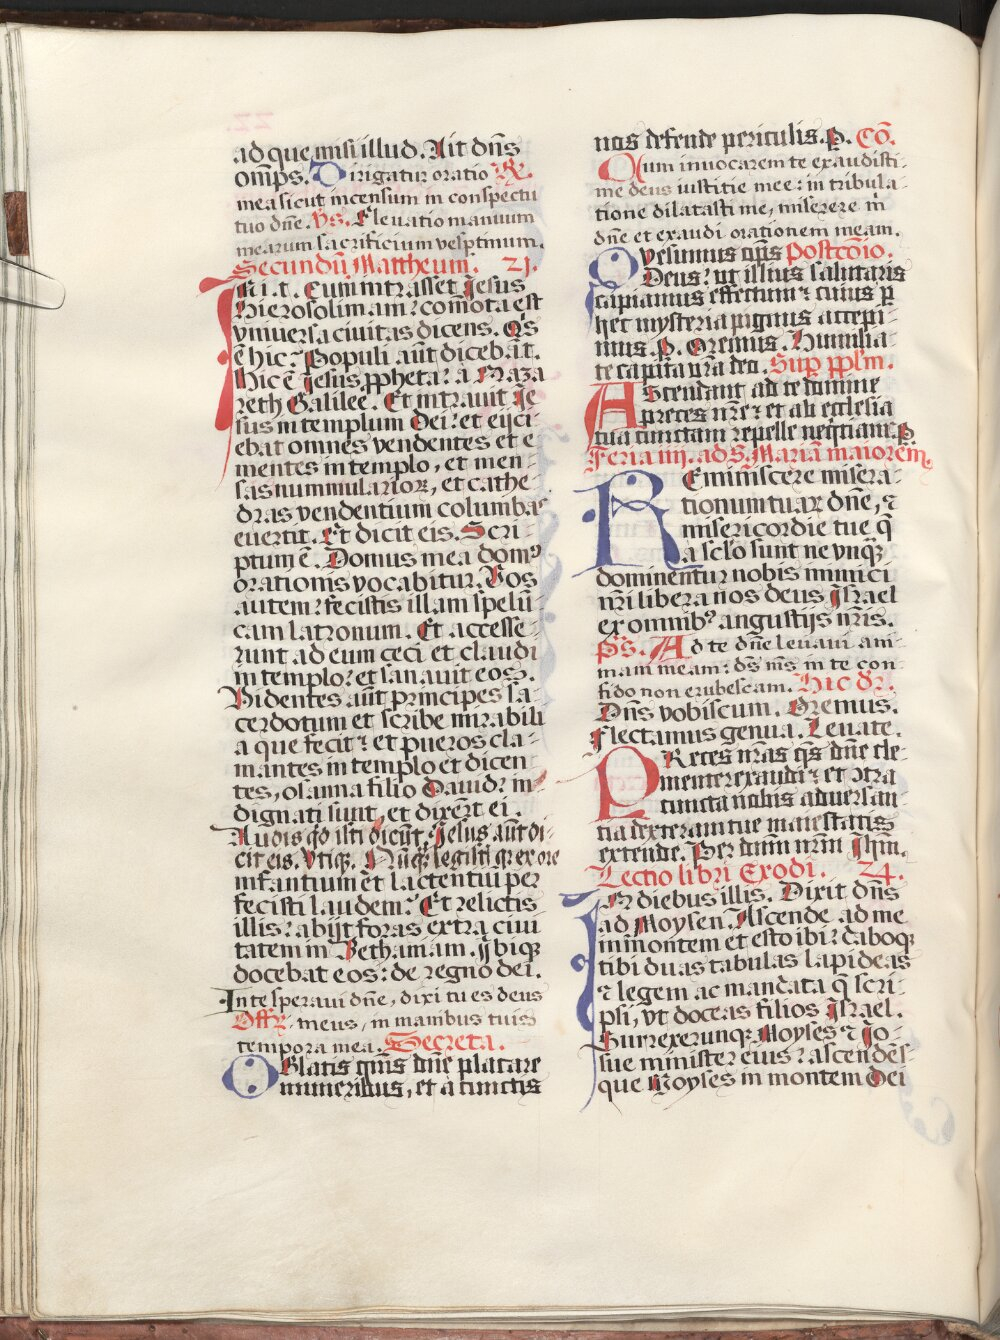 ad que misi illud. Ait dñs
om̃ps. Dirigatur oratio R.
mea sicut incensum in conspectu
tuo dñe. Vs. Eleuatio manuum
mearum sacrificium vesp̱tinum.
Secundũ Mattheum. 21.
In i. t. Cum intrasset Jesus
hierosolimam: com̃ota est
vniuersa ciuitas dicens. Qⁱs
ẽ hic? Populi aũt dicebãt.
Hic ẽ Jesus, ꝓpheta: a Naza
reth Galilee. Et intrauit Je
sus in templum Dei: et eijci
ebat omnes vendentes et e
mentes in templo, et men-
sas nummularioꝝ, et cathe-
dras vendentium columbas
euertit. Et dicit eis. Scri-
ptum ẽ. Domus mea domꝰ
orationis vocabitur. Vos
autem: fecistis illam spelũ-
cam latronum. Et accesse-
runt ad eum ceci et claudi
in templo: et sanauit eos.
Videntes aũt principes sa-
cerdotum et scribe mirabili
a que fecit: et pueros cla-
mantes in templo et dicen
tes, osanna filio Dauid: in-
dignati sunt, et dixert̃ ei.
Audis qd̃ isti dicũt. Jesus aũt di-
cit eis. Vtiqꝫ. Nũqꝫ legisti qꝛ ex ore
infantium et lactentiũ per
fecisti laudem? Et relictis
illis: abijt foras extra ciui
tatem in Bethaniam. ijbiqꝫ
docebat eos: de regno dei.
In te speraui dñe, dixi tu es deus
Offꝝ. meus, in manibus tuis
tempora mea. Secreta.
Oblatis qs̃m̃s dñe placare
muneribus, et a cunctis
nos defende periculis. P. Cõ.
Cum inuocarem te exaudisti-
me deus iustitie mee: in tribula-
tione dilatasti me, miserere m̃
dñe et exaudi orationem meam.
Quesumus om̃ps Postcõio.
Deus: ut illius salutaris
capiamus effectum: cuius ꝑ
hec mysteria pignus accepi-
mus. P. Oremus. Humilia-
te capita vr̃a deo. Sup pp̃lm.
Ascendant ad te domine
preces nr̃e: et ab ecclesia
tua cunctam repelle neqͥtiam. P.
Feria iiij. ad S. Mariã maiorem.
Reminiscere misera-
tionum tuaꝝ dñe, ⁊
misericordie tue q̃
a sc̃lo sunt ne vnqꝫ
dominentur nobis inimici
nr̃i libera nos deus Israel
ex omnibꝰ angustijs nr̃is.
Ps. Ad te dñe leuaui ani-
mam meam: ds̃ ms̃ in te con-
fido non erubescam. Hic dr̃.
Dñs vobiscum. Oremus.
Flectamus genua. Leuate.
Preces nr̃as qs̃ dñe cle-
menter exaudi: et ↄtra
cuncta nobis aduersan-
tia dexteram tue maiestatis
extende. Per dñm nr̃m Ihm̃.
Lectio libri Exodi. 24.
In diebus illis. Dixit dñs
ad Moysen. Ascende ad me
in montem et esto ibi: daboqꝫ
tibi duas tabulas lapideas
⁊ legem ac mandata q̃ scri-
psi, vt doceas filios Israel.
Surrexerunqꝫ Moyses ⁊ Jo-
sue minister eius: ascendẽs-
que Moyses in montem Dei